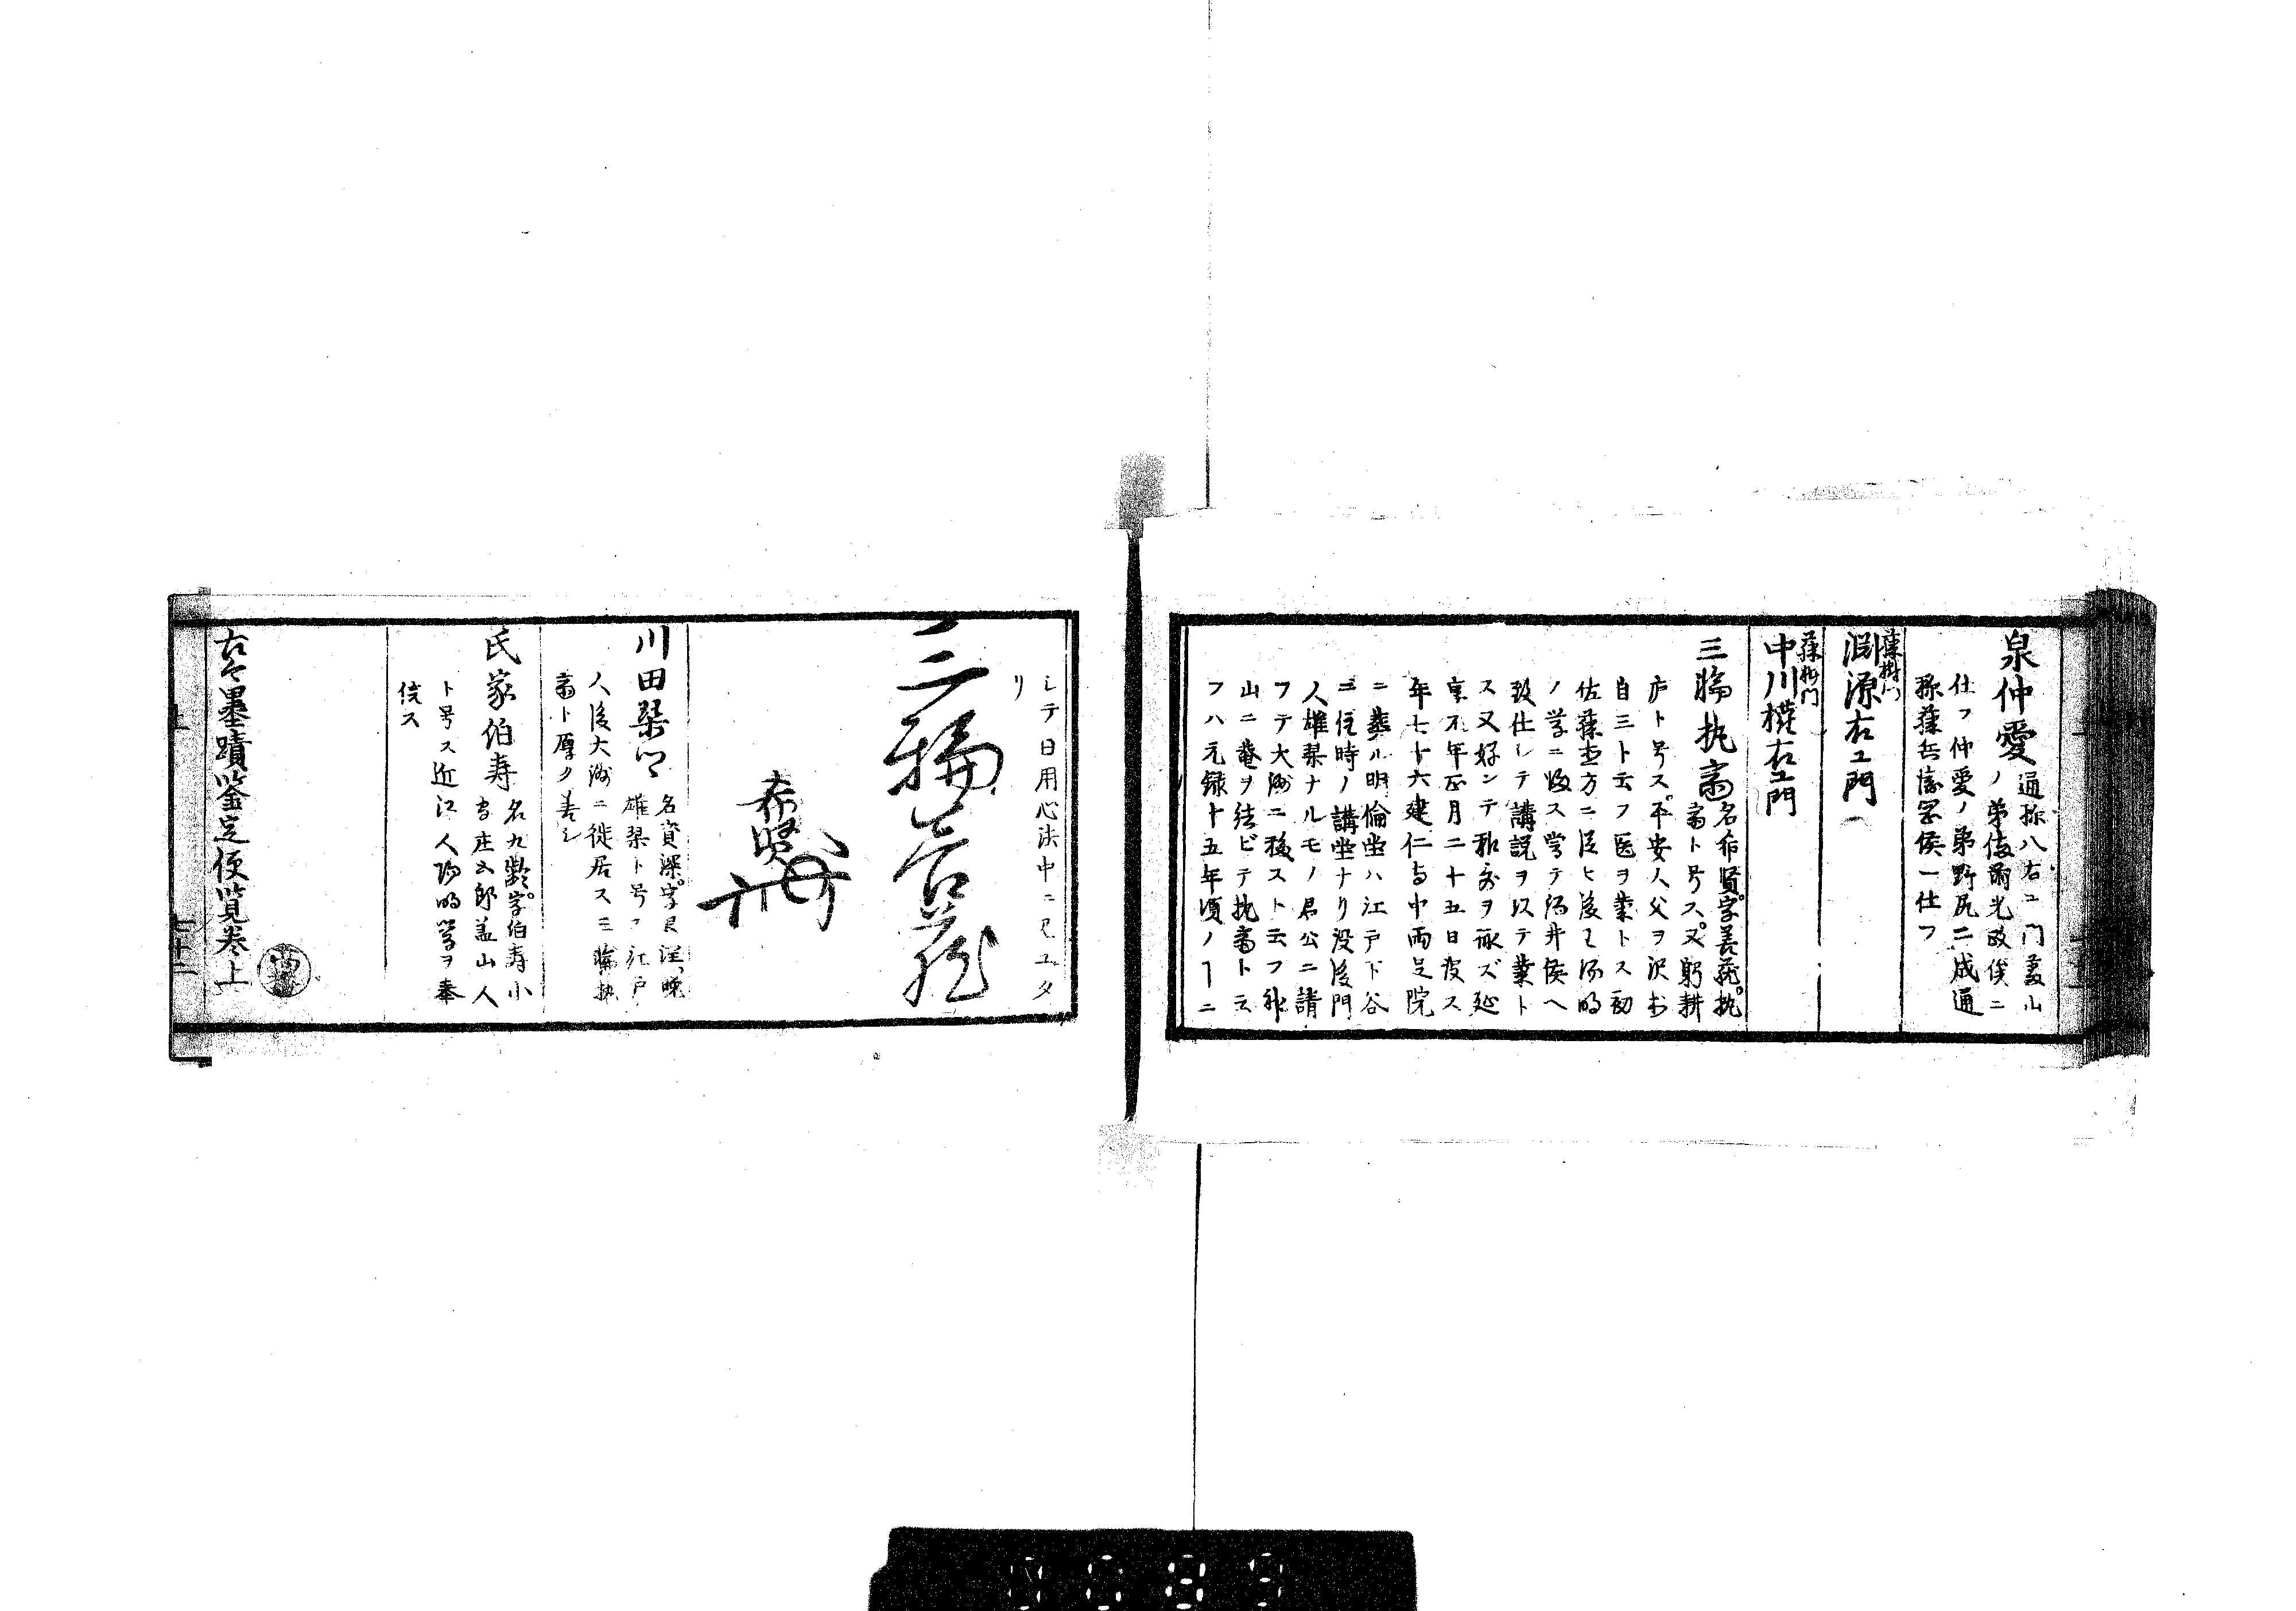 泉仲愛
通称八右エ門蕃山
ノ弟備前光政侯ニ
仕フ仲愛ノ弟野尻二成通
称藤兵
侯一仕フ
藤樹門
淵源右エ門
藤樹門
中川権右エ門
三輪執斎
名希賢。字善蔵。執
斎ト号ス。又躬耕
庐ト号ス。平安人父ヲ沢村
自三ト云フ医ヲ業トス初
佐藤直方ニ従ヒ後王陽明
ノ学ニ帰ス嘗テ酒井侯ヘ
致仕シテ講説ヲ以テ業ト
ス又好ンテ和歌ヲ詠ズ延
享元年正月二十五日没ス
年七十六建仁寺中両足院
ニ葬ル明倫堂ハ江戸下谷
ニ住時ノ講堂ナリ没後門
人雄琴ナルモノ君公ニ請
フテ大洲ニ移スト云フ
山ニ菴ヲ結ビテ執斎ト云
フハ元録十五年頃ノヿニ
シテ日用心法中ニ見エタ
リ
三輪善蔵
希賢
川田琴卿
名資深。字君淵。
雄琴ト号ス江戸
人後大洲ニ徙居ス三輪執
斎ト厚ク善シ
氏家伯寿
名九齢。字伯寿小
字庄五郎蓋山人
ト号ス近江人陽明学ヲ奉
信ス
古今墨蹟鑒定便覧巻上
上
七十二